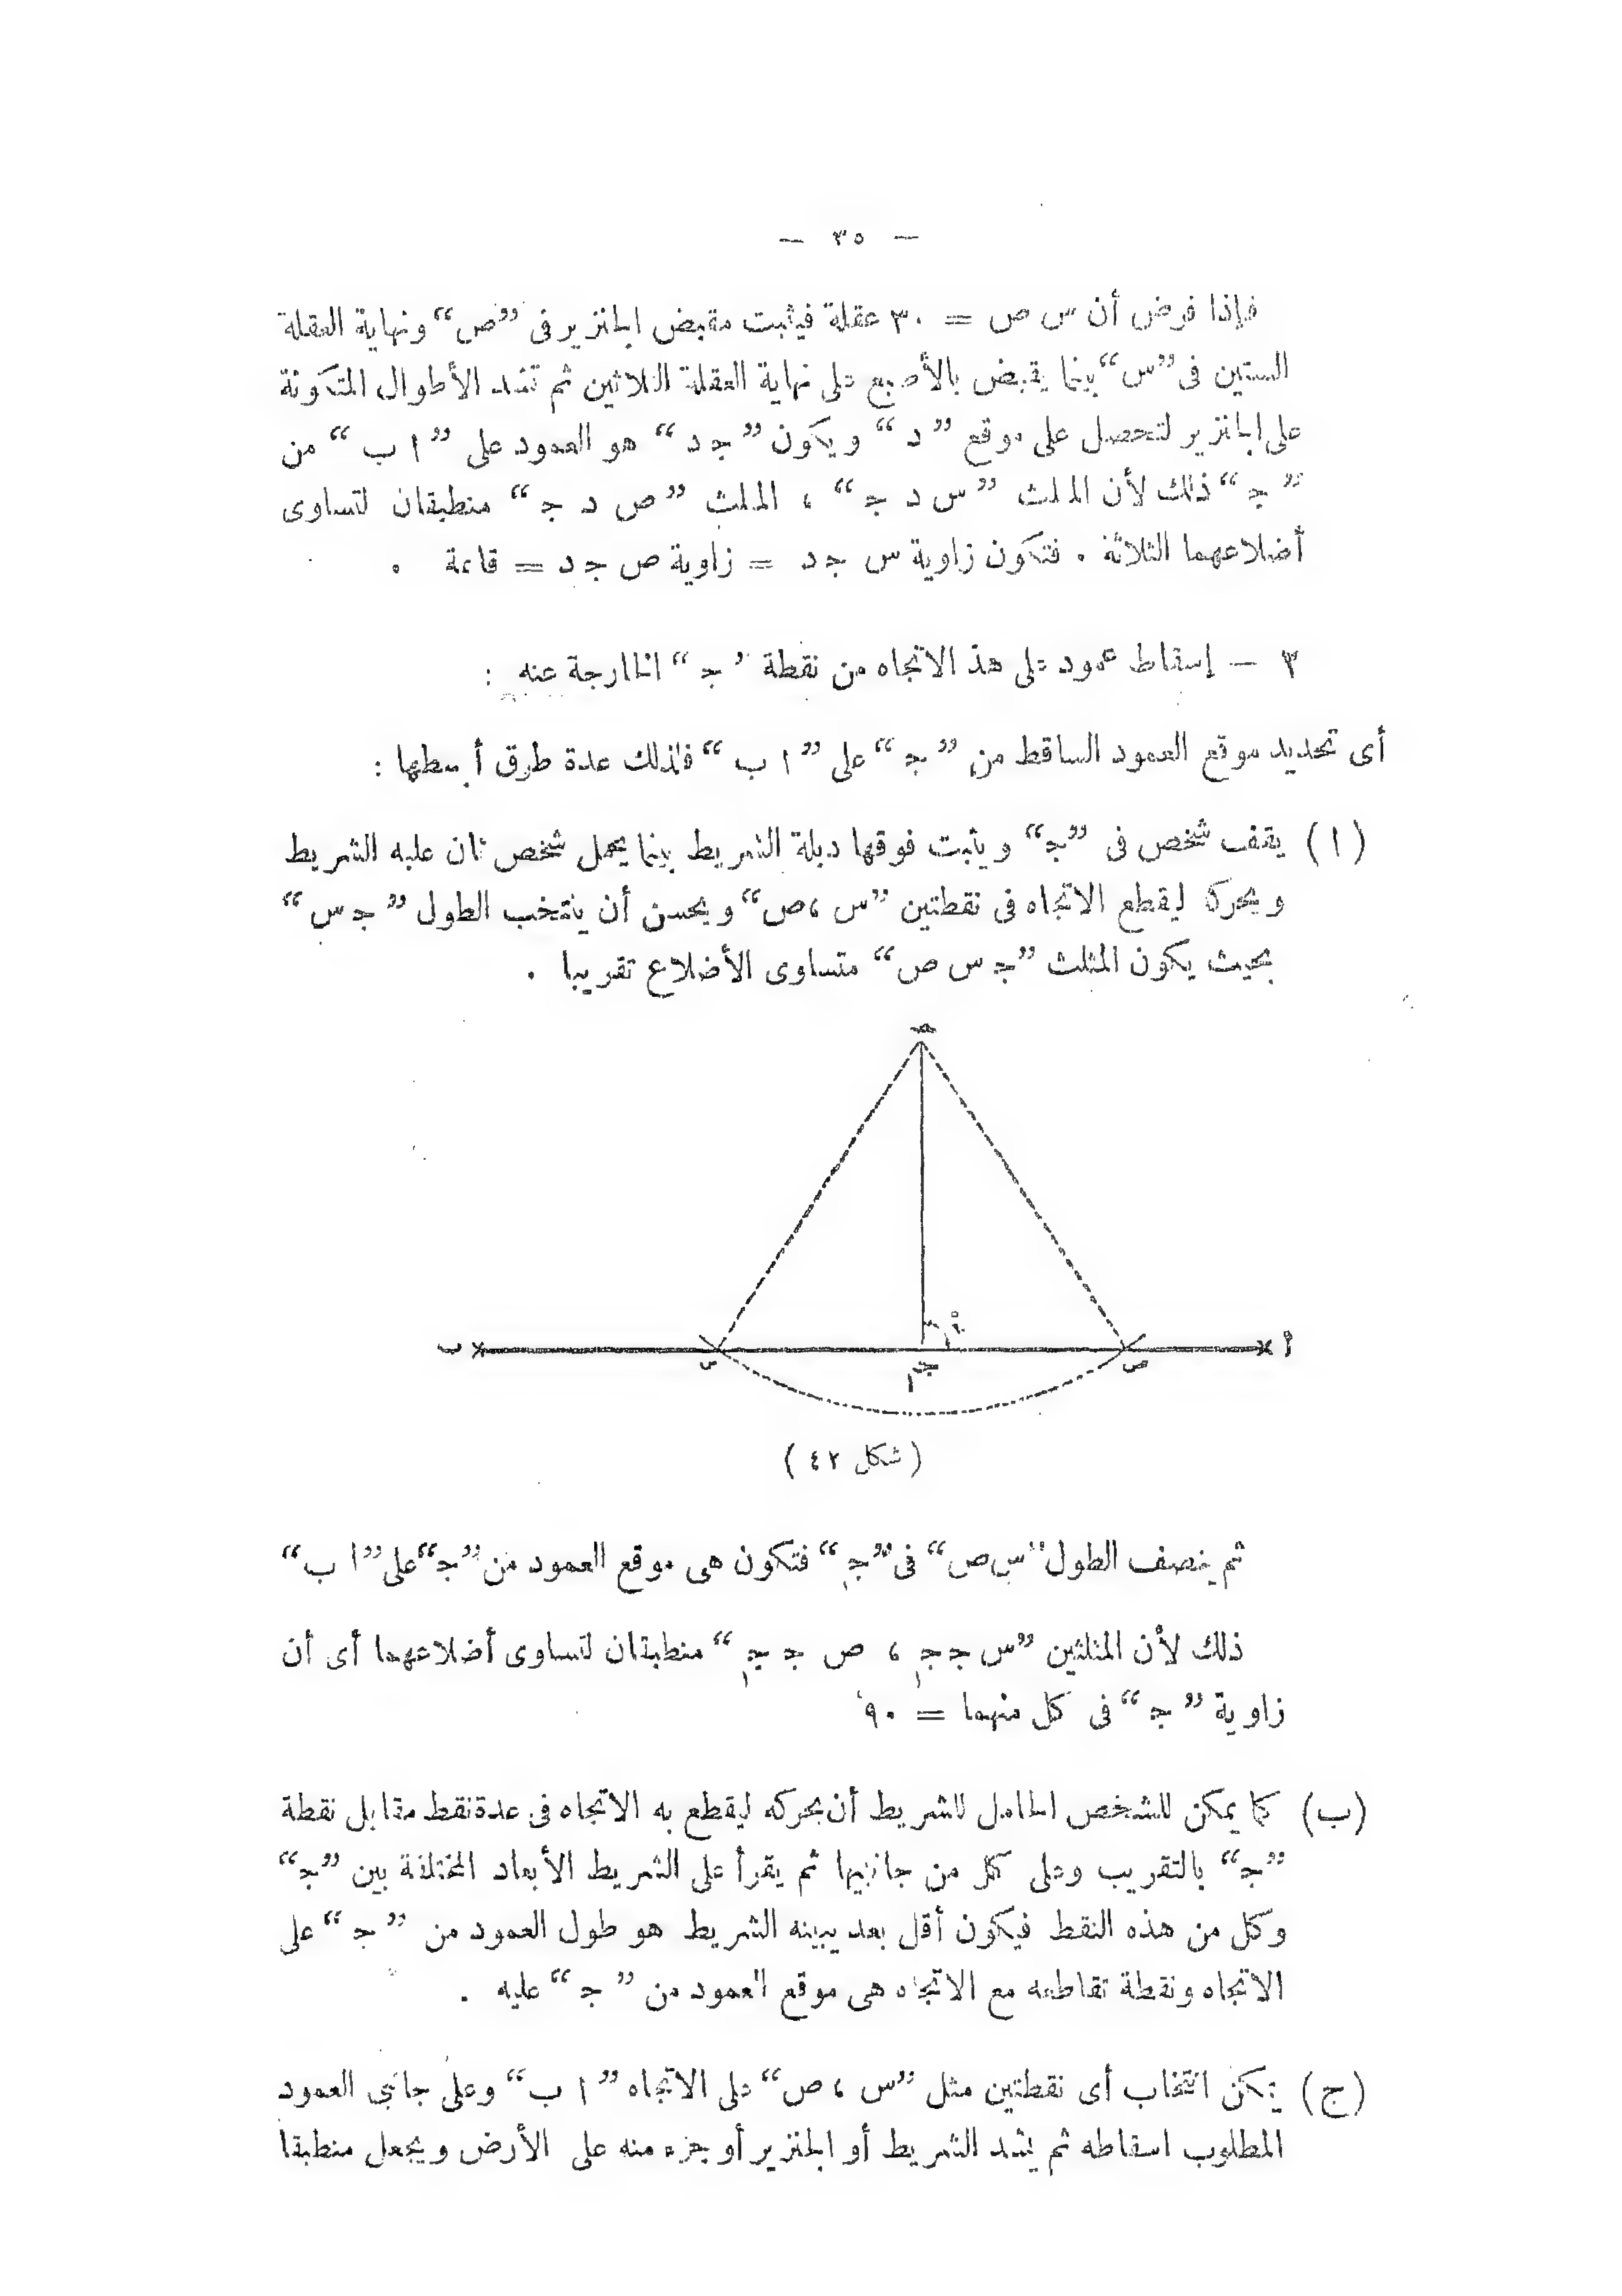 — ٣٥ —
فإذا فرض أن س ص = ٣٠ عقلة فيثبت مقبض الجنزير فى ”ص“ ونهاية العقلة
الستين فى ”س“ بينما يقبض بالأصبع على نهاية العقلة الثلاثين ثم تشد الأطوال المتكونة
على الجنزير لتحصل على موقع ”د“ ويكون ”جـ د“ هو العمود على ”ا ب“ من
”جـ“ ذلك لأن المثلث ”س د جـ“ ، المثلث ”ص د جـ“ منطبقان لتساوى
أضلاعهما الثلاثة . فتكون زاوية س جـ د = زاوية ص جـ د = قائمة .
٣ — إسقاط عمود على هذ الاتجاه من نقطة ”جـ“ الخارجة عنه :
أى تحديد موقع العمود الساقط من ”جـ“ على ”ا ب“ فلذلك عدة طرق أبسطها :
(ا) يقف شخص فى ”جـ“ ويثبت فوقها دبلة الشريط بينما يحمل شخص ثان علبه الشريط
ويحركه ليقطع الاتجاه فى نقطتين ”س ، ص“ ويحسن أن ينتخب الطول ”جـ س“
بحيث يكون المثلث ”جـ س ص“ متساوى الأضلاع تقريبا .
جـ
٩٠°
ب س جـ١ ص أ
(شكل ٤٢)
ثم ينصف الطول ”س ص“ فى ”جـ١“ فتكون هى موقع العمود من ”جـ“ على ”ا ب“
ذلك لأن المثلثين ”س جـ جـ١ ، ص جـ جـ١“ منطبقان لتساوى أضلاعهما أى أن
زاوية ”جـ“ فى كل منهما = ٩٠°
(ب) كما يمكن للشخص الحامل للشريط أن يحركه ليقطع به الاتجاه فى عدة نقط مقابل نقطة
”جـ“ بالتقريب وعلى كل من جانبيها ثم يقرأ على الشريط الأبعاد المختلفة بين ”جـ“
وكل من هذه النقط فيكون أقل بعد يبينه الشريط هو طول العمود من ”جـ“ على
الاتجاه ونقطة تقاطعه مع الاتجاه هى موقع العمود من ”جـ“ عليه .
(ج) يمكن انتخاب أى نقطتين مثل ”س ، ص“ على الاتجاه ”ا ب“ وعلى جانبى العمود
المطلوب اسقاطه ثم يشد الشريط أو الجنزير أو جزء منه على الأرض ويجعل منطبقا